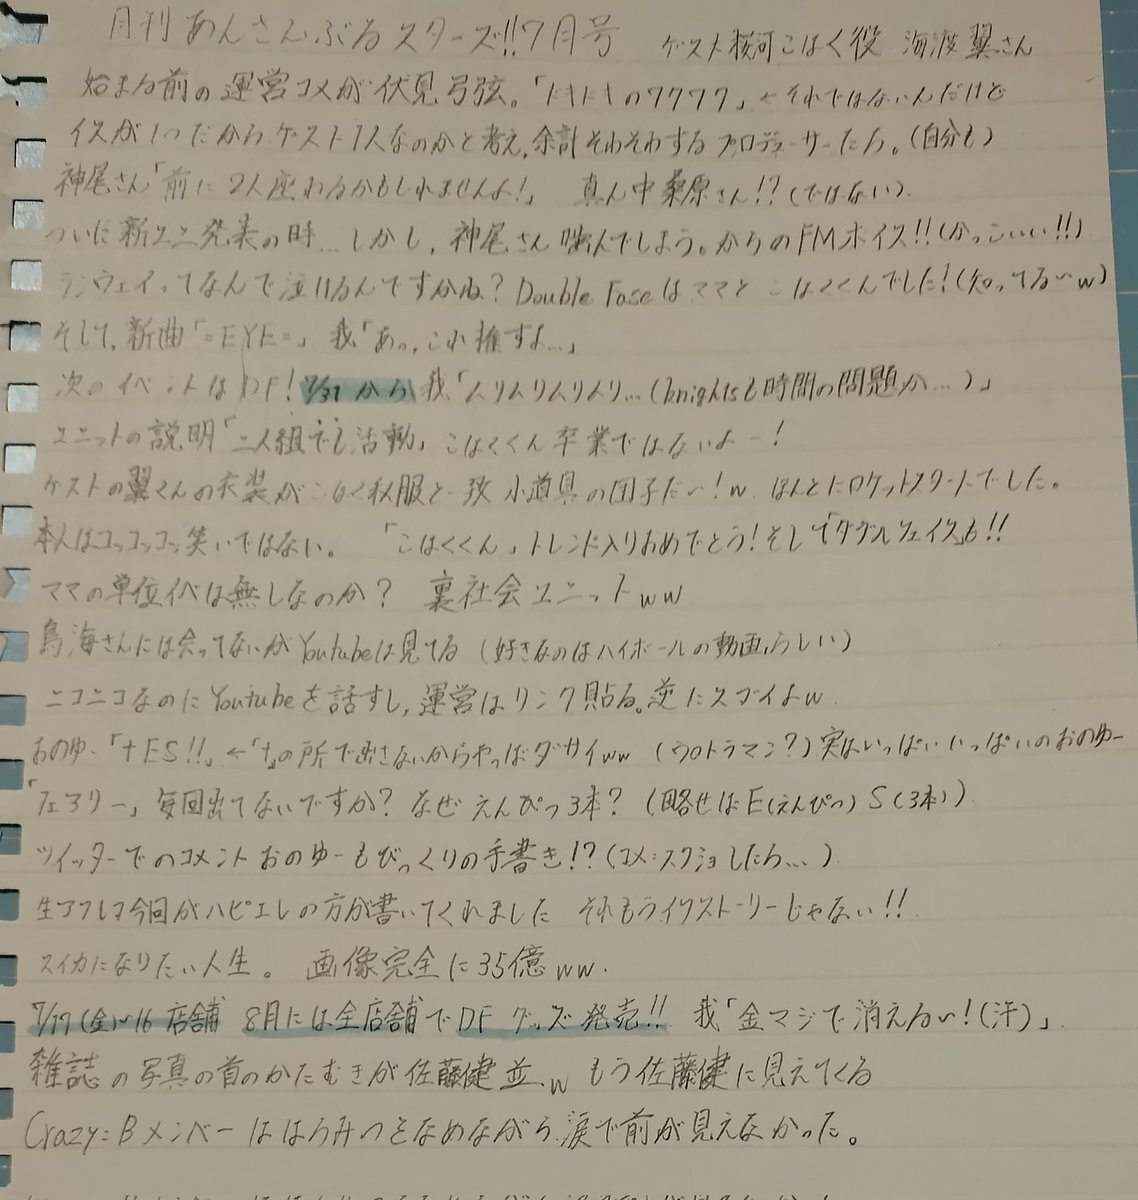 月刊あんさんぶるスターズ!!7月号 ゲスト桜河こはく役 海渡翼さん
始まる前の運営コメが伏見弓弦。「ドキドキの7777」←それではないんだけど
イスが1つだからゲスト1人なのかと考え,余計そわそわするプロデューサーたち。(自分も)
神尾さん「前に2人座わるかもしれませんよ!」 真ん中桑原さん!?(ではない)
ついに新ユニ発表の時…しかし,神尾さん噛んでしまう。からのFMボイス!!(かっこいい!!)
ランウェイってなんで泣けるんですかね? Double Faceはママとこはくくんでした!(知ってる〜w)
そして,新曲「=EYE=」 我「あっ,これ推すよ…」
次のイベントはDF! 7/31から 我「ムリムリムリムリ…(knightsも時間の問題か…)」
ユニットの説明「二人組でも活動」こはくくん卒業ではないよー!
ゲストの翼くんの衣装がこはく私服と一致 小道具の団子だい!w ほんとにロケットスタートでした。
本人はコッコッコッ笑いではない。 「こはくくん」トレンド入りおめでとう!そして「ダブルフェイス」も!!
ママの単位イベは無しなのか? 裏社会ユニットww
鳥海さんには会ってないがYoutubeは見てる(好きなのはハイボールの動画らしい)
ニコニコなのにYoutubeを話すし,運営はリンク貼る。逆にスゴイよw
おのゆー「+ES!!」←「+」の所で出さないからやっぱダサイww (ウルトラマン?)実はいっぱいいっぱいのおのゆー
「フェアリー」毎回出てないですか? なぜえんぴつ3本? (略せばE(えんぴつ)S(3本))
ツイッターでのコメントおのゆーもびっくりの手書き!?(コメ:スクショしたら…)
生アフレコ今回がハピエレの方が書いてくれました それもうイクストーリーじゃない!!
スイカになりたい人生。 画像完全に35億ww.
7/17(金)〜16店舗 8月には全店舗でDFグッズ発売!! 我「金マジで消えるい!(汗)」
雑誌の写真の首のかたむきが佐藤健並、w もう佐藤健に見えてくる
Crazy:Bメンバーははちみつをなめながら,涙で前が見えなかった。